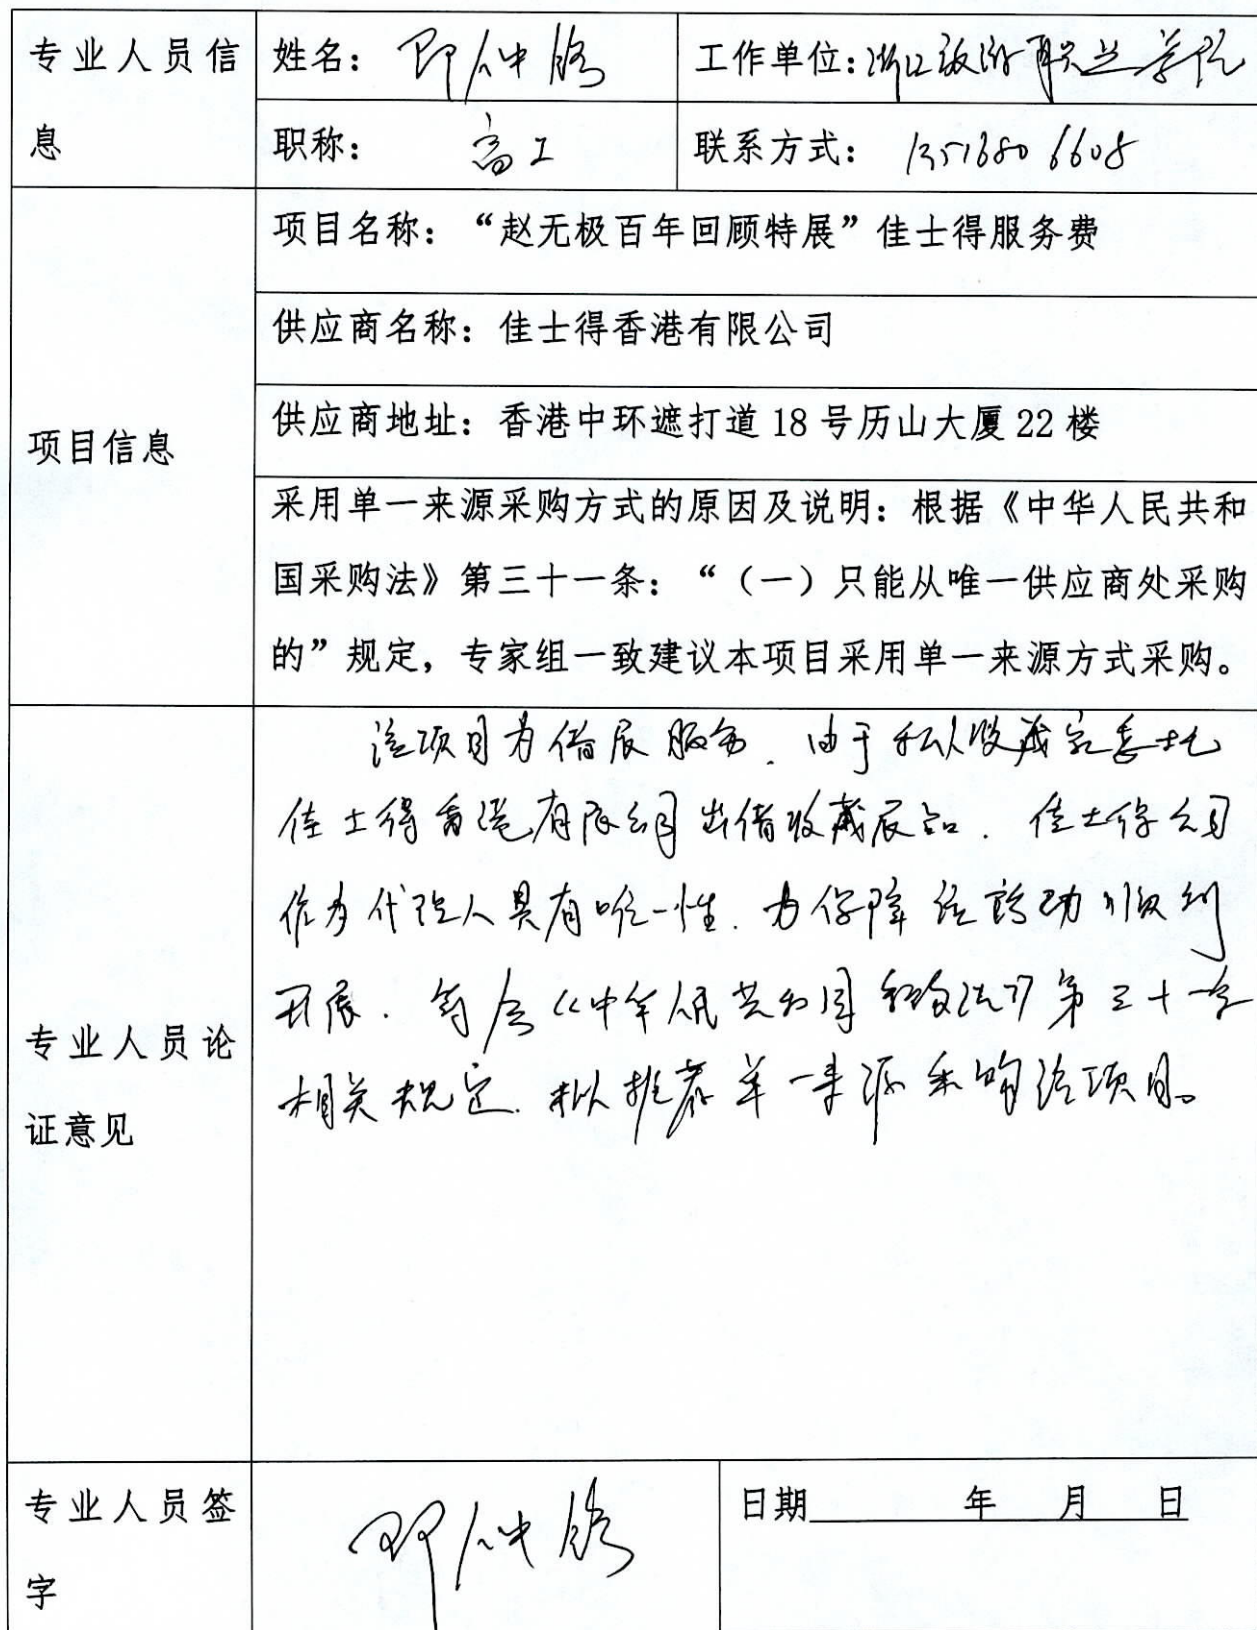 专业人员信息
姓名：邵仲修
工作单位：浙江旅游职业学院
职称：高工
联系方式：13516806608
项目信息
项目名称：“赵无极百年回顾特展”佳士得服务费
供应商名称：佳士得香港有限公司
供应商地址：香港中环遮打道 18 号历山大厦 22 楼
采用单一来源采购方式的原因及说明：根据《中华人民共和
国采购法》第三十一条：“（一）只能从唯一供应商处采购
的”规定，专家组一致建议本项目采用单一来源方式采购。
专业人员论证意见
该项目为借展服务．由于私人收藏家委托
佳士得香港有限公司出借收藏展品．佳士得公司
作为代理人具有唯一性．为保障该活动顺利
开展．符合《中华人民共和国采购法》第三十一条
相关规定．拟推荐单一来源采购该项目。
专业人员签字
日期 年 月 日